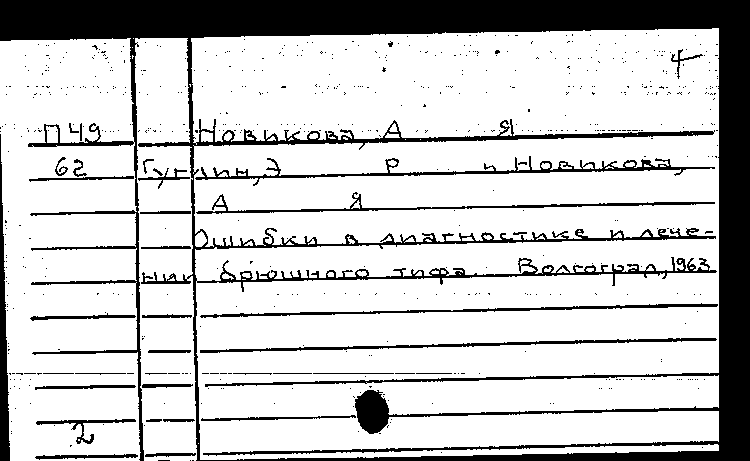 4
П49 Новикова, А Я
62 Гуглин, Э Р и Новикова,
А Я
Ошибки в диагностике и лече-
нии брюшного тифа Волгоград, 1963
2